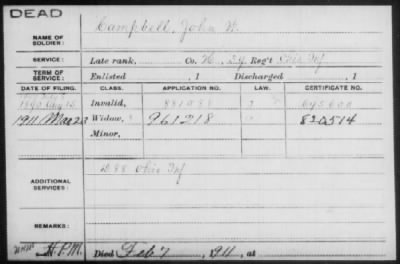 DEAD
NAME OF SOLDIER: Campbell, John W.
SERVICE: Late rank, Co. H, 24 Reg't Ohio Inf
TERM OF SERVICE: Enlisted , 1 Discharged , 1
DATE OF FILING. CLASS. APPLICATION NO. LAW. CERTIFICATE NO.
1890 Aug 15 Invalid, 881988
1911 Mar 23 Widow, 961218 820514
Minor,
ADDITIONAL SERVICES: D 88 Ohio Inf
REMARKS:
Died Feb 7, 1911, at